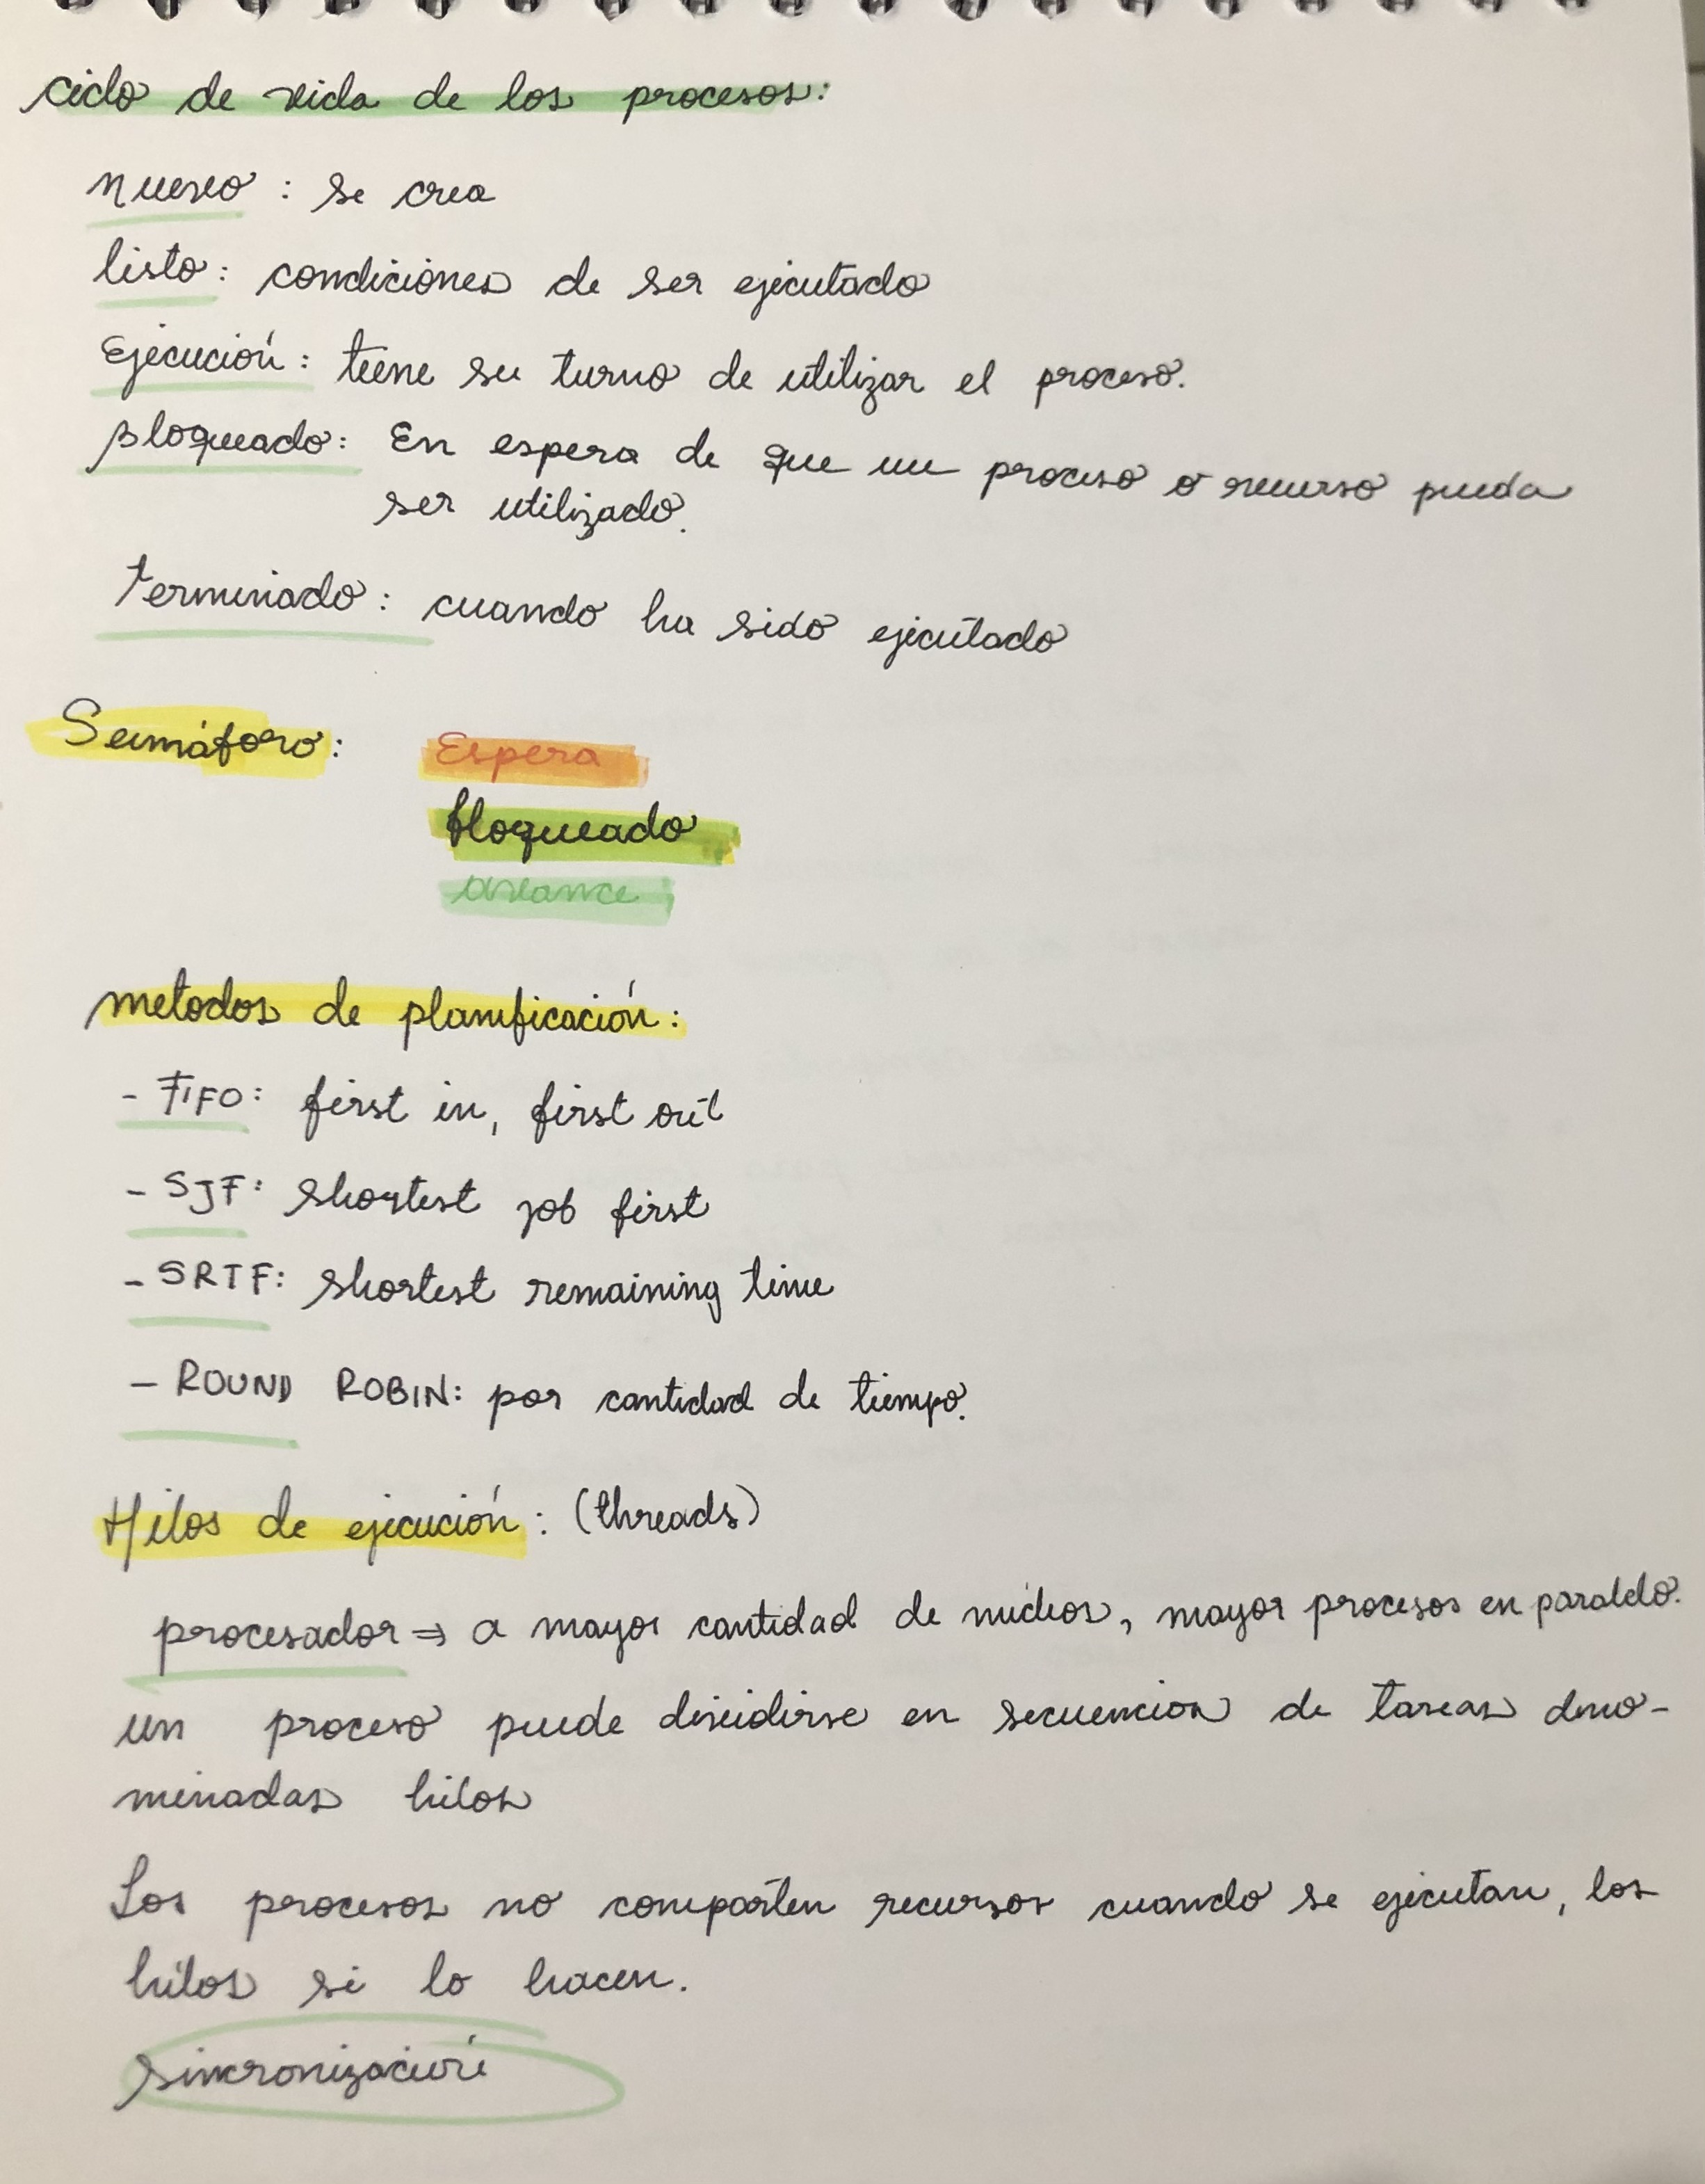 ciclo de vida de los procesos:
nuevo : se crea
listo: condiciones de ser ejecutado
Ejecución: tiene su turno de utilizar el proceso.
bloqueado: En espera de que un proceso o recurso pueda
ser utilizado.
terminado: cuando ha sido ejecutado
Semáforo: Espera
bloqueado
avance
metodos de planificación:
- FIFO: first in, first out
- SJF: shortest job first
- SRTF: shortest remaining time
- ROUND ROBIN: por cantidad de tiempo.
Hilos de ejecución: (threads)
procesador ⇒ a mayor cantidad de nucleos, mayor procesos en paralelo.
un proceso puede dividirse en secuencia de tareas deno-
minadas hilos
Los procesos no comparten recursos cuando se ejecutan, los
hilos si lo hacen.
sincronización